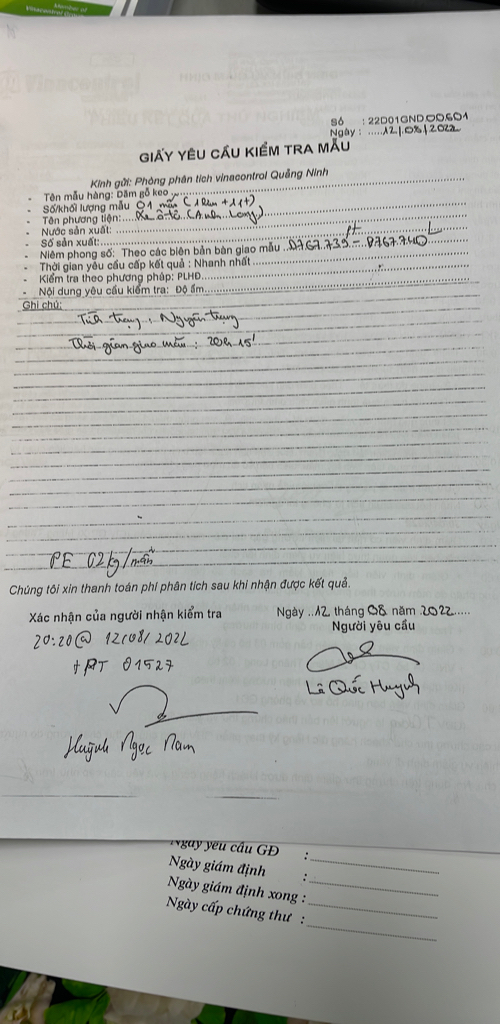 Member of
Vinacontrol Group
Số : 22D01GND00601
Ngày : .....12/08/2022
GIẤY YÊU CẦU KIỂM TRA MẪU
Kính gửi: Phòng phân tích vinacontrol Quảng Ninh
- Tên mẫu hàng: Dăm gỗ keo
- Số/khối lượng mẫu 01 mẫu
- Tên phương tiện: Xe ô tô (Anh Long)
- Nước sản xuất:
- Số sản xuất:
- Niêm phong số: Theo các biên bản bàn giao mẫu 0767.739 - 0767.740
- Thời gian yêu cầu cấp kết quả : Nhanh nhất
- Kiểm tra theo phương pháp: PLHĐ
- Nội dung yêu cầu kiểm tra: Độ ẩm
Ghi chú:
Tình trạng : Nguyên trạng
Thời gian giao mẫu : 20h 15'
PE 02kg/mẫu
Chúng tôi xin thanh toán phí phân tích sau khi nhận được kết quả.
Xác nhận của người nhận kiểm tra
Ngày ..12 tháng 08 năm 2022.....
Người yêu cầu
20:20@ 12/08/2022
01527
Lê Quốc Huynh
Huỳnh Ngọc Nam
Ngày yêu cầu GĐ :
Ngày giám định :
Ngày giám định xong :
Ngày cấp chứng thư :